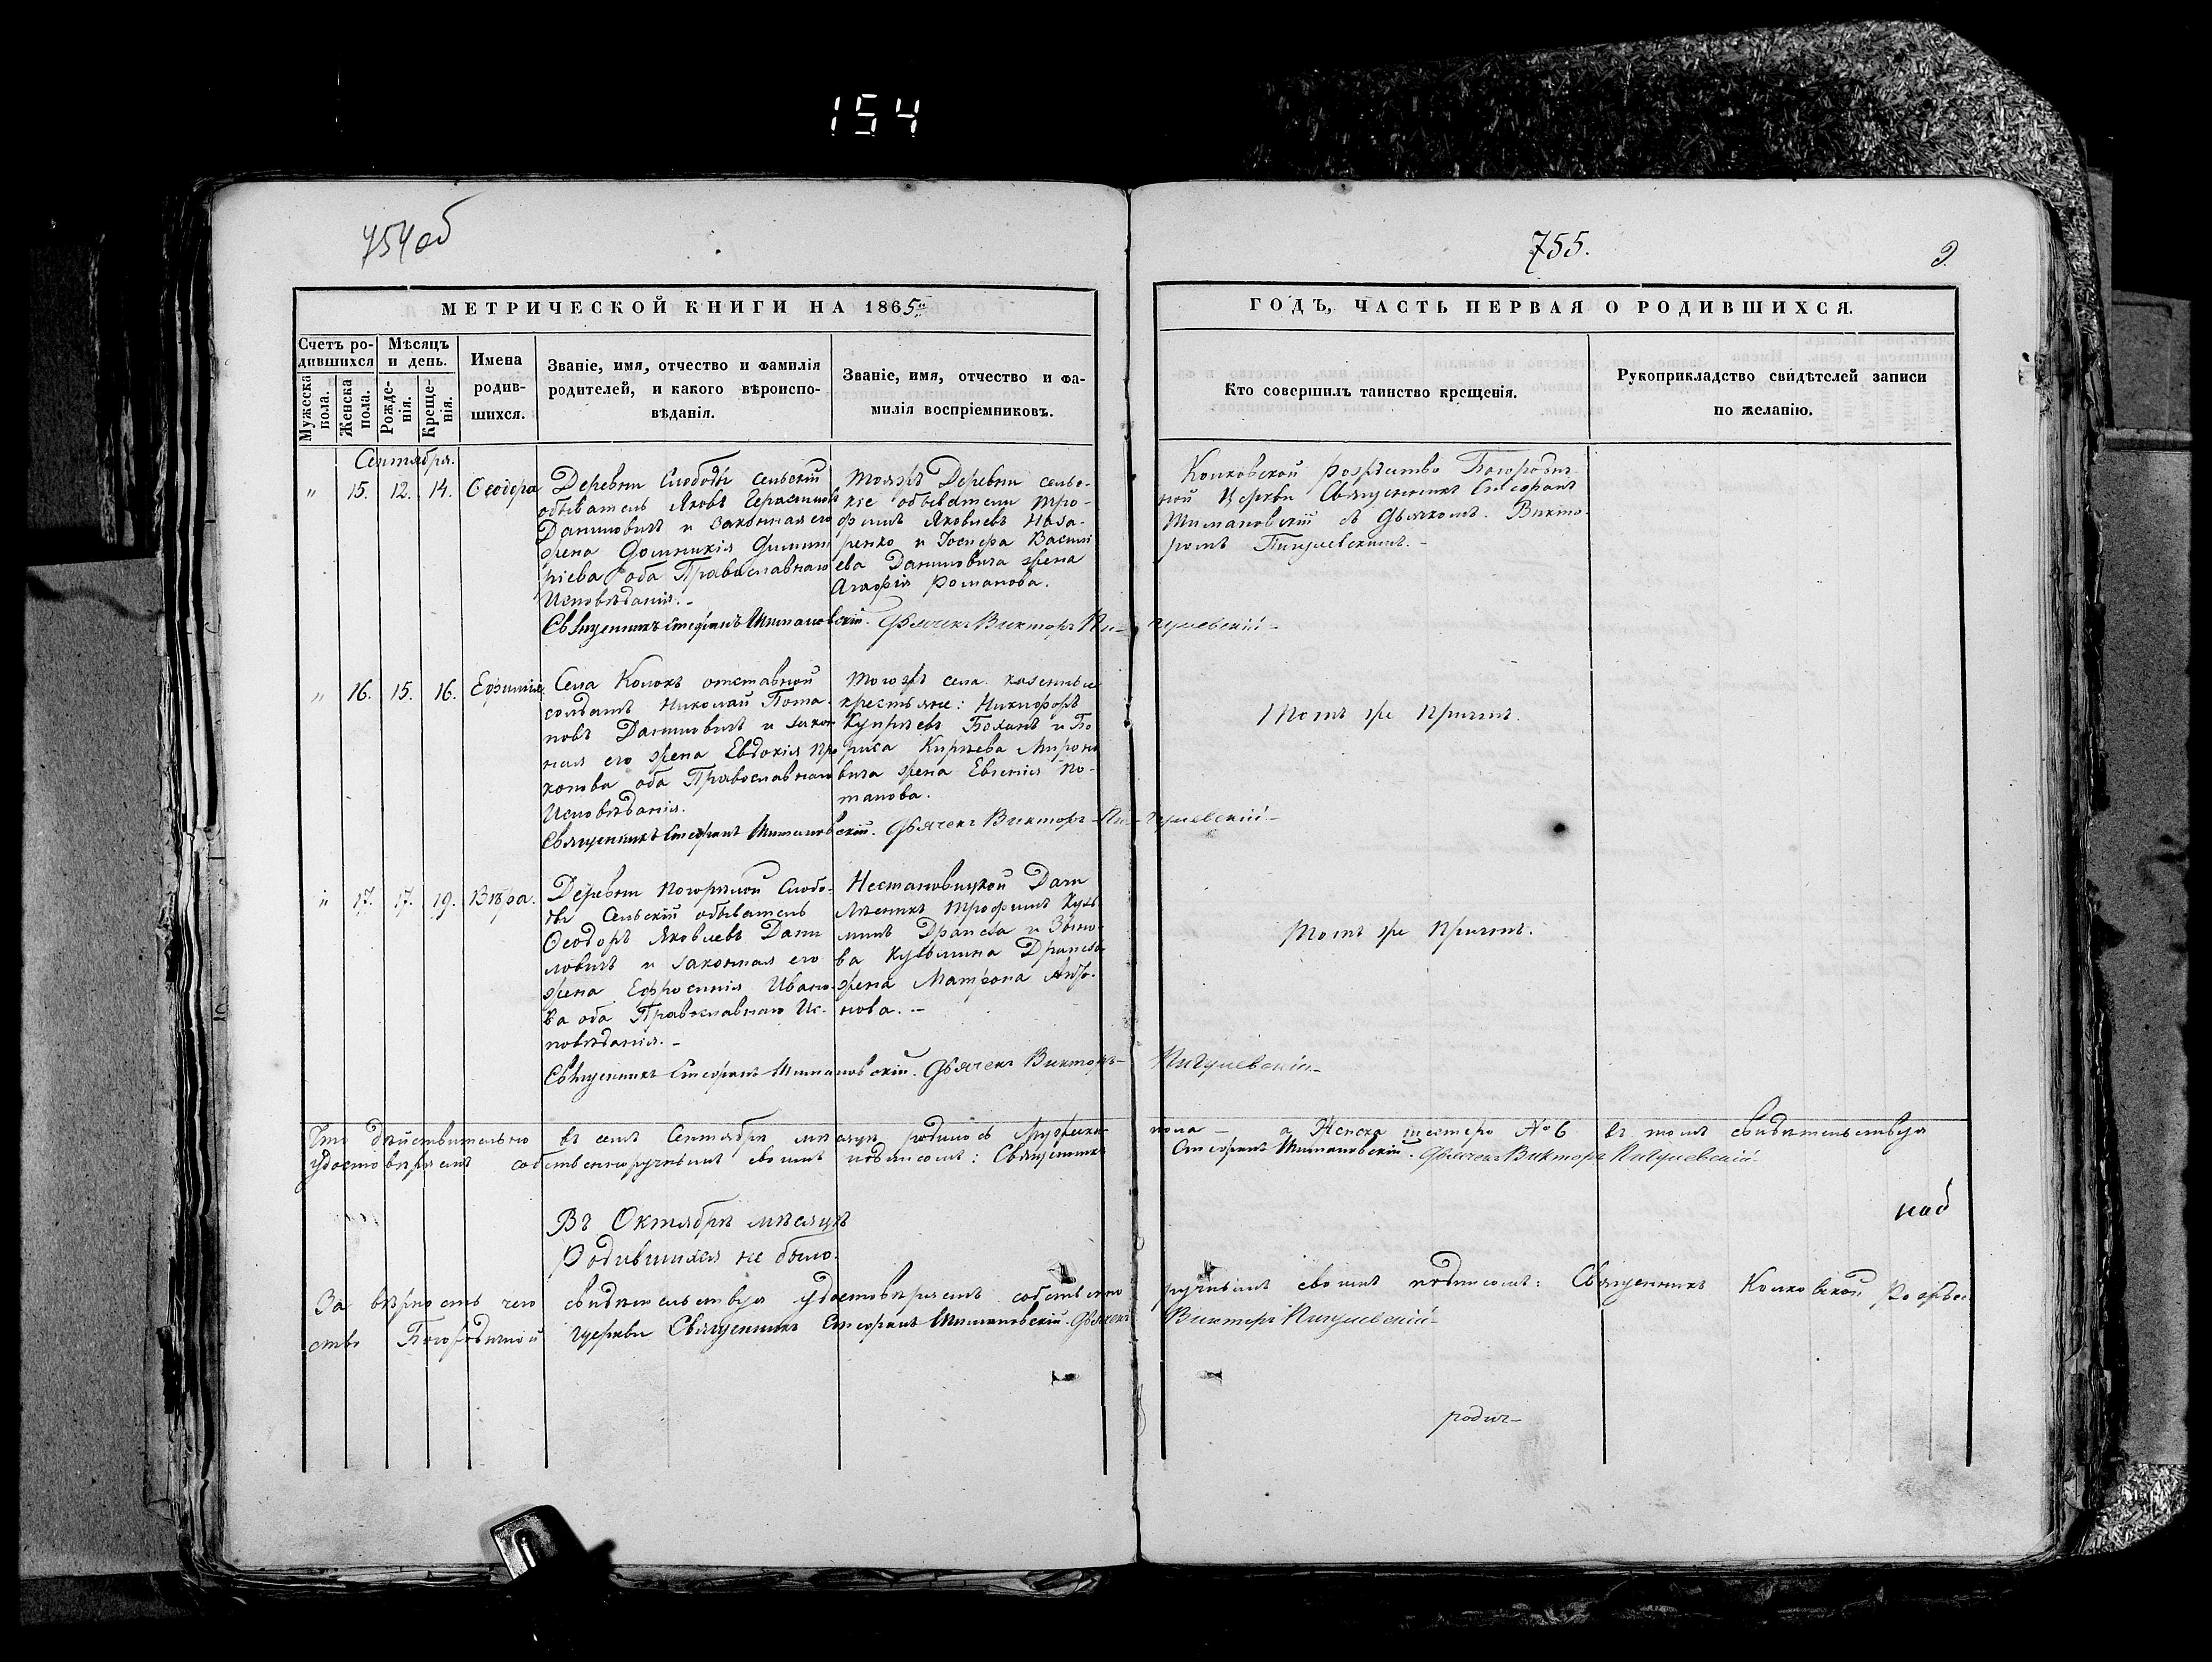 154
754об
755.
9
МЕТРИЧЕСКОЙ КНИГИ НА 1865
ГОДЪ, ЧАСТЬ ПЕРВАЯ О РОДИВШИХСЯ.
Счетъ ро-
дившихся
Мѣсяцъ
и день.
Мужеска
пола.
Женска
пола.
Рожде-
нія.
Креще-
нія.
Имена
родив-
шихся.
Званіе, имя, отчество и фамилія
родителей, и какого вѣроиспо-
вѣданія.
Званіе, имя, отчество и фа-
милія воспріемниковъ.
Кто совершилъ таинство крещенія.
Рукоприкладство свидѣтелей записи
по желанію.
Сентября.
" 15. 12. 14. Ѳеодора
Деревни Слободы сельскій
обыватель Яковъ Герасимовъ
Даниловичъ и законная его
жена Домникія Димит
ріева оба Православнаго
Исповѣданія.-
Тояжъ Деревни сель-
кіе обыватели Тро-
фимъ Яковлевъ Наза-
ренко и Іосифа Васил
ева Даниловича жена
Агафія Романова.
Колковской Рождество Богородич
ной Церкви Священникъ Стефанъ
Шимановскій съ Дьячкомъ Викто-
ромъ
Священникъ Стефанъ Шимановскій. Дьячекъ Викторъ
" 16. 15. 16. Ефимія.
Села Колокъ отставной
солдатъ Николай Пота-
повъ Даниловичъ и закон
ная его жена Евдокія Про
копова оба Православнаго
Исповѣданія.
Тогожъ села казенные
крестьяне: Никифоръ
и Бо
риса Мироно
вича жена Евгенія По-
тапова.
Тотъ же Причтъ.
Священникъ Стефанъ Шимановскій. Дьячекъ Викторъ
" 17. 17. 19. Вѣра.
Деревни Погорѣлой Слобо-
ды Сельскій обыватель
Ѳеодоръ Яковлевъ Дани
ловичъ и законная его
жена Ефросинія Ивано-
ва оба Православнаго Ис-
повѣданія.-
Дачи
Лѣсникъ Трофимъ Кузь
минъ и
ва Кузьмина
жена Матрона
нова.-
Тотъ же Причтъ.
Священникъ Стефанъ Шимановскій. Дьячекъ Викторъ
Что дѣйствительно въ семъ Сентябрѣ мѣсяцѣ родилось Мужеска пола - а Женска шестеро № 6 въ томъ свидѣтельствуя
удостовѣряемъ собственноручнымъ своимъ подписомъ: Священникъ Стефанъ Шимановскій. Дьячекъ Викторъ
Въ Октябрѣ мѣсяцѣ
Родившихся не было.
За вѣрность чего свидѣтельствуя удостовѣряемъ собственно ручнымъ своимъ подписомъ: Священникъ Колковской Рождес
ство Богородичной церкви Священникъ Стефанъ Шимановскій. Дьячекъ Викторъ
родил-